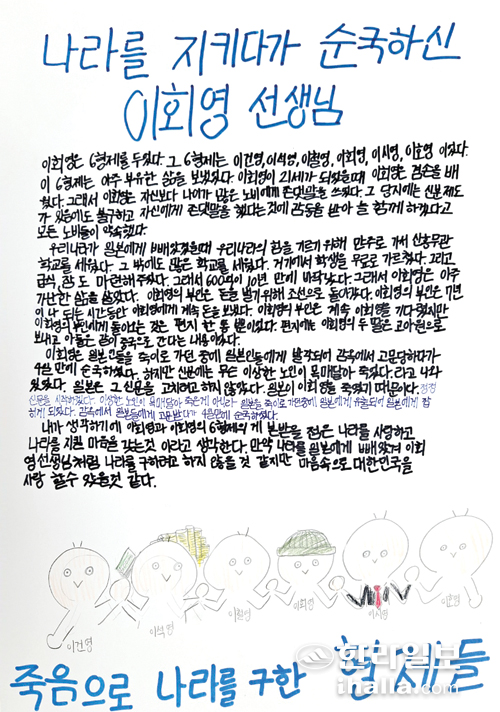 나라를 지키다가 순국하신
이회영 선생님
이회영은 6형제를 두웠다. 그 6형제는 이건영, 이석영, 이철영, 이회영, 이시영, 이호영 이였다.
이 6형제는 아주 부유한 삶을 보냈었다. 이회영이 21세가 되었을때 이회영은 겸손을 배
웠다. 그래서 이회영은 자신보다 나이가 많은 노비에게 존댓말을 쓰였다. 그 당시에는 신분제도
가 있음에도 불구하고 자신에게 존댓말을 했다는 것에 감동을 받아 늘 함께 하겠다고
모든 노비들이 약속했다.
우리나라가 일본에게 빼앗겼을때 우리나라의 힘을 기르기 위해 만주로 가서 신흥무관
학교를 세웠다. 그 밖에도 많은 학교를 세웠다. 거기에서 학생을 무료로 가르쳤다. 그리고
급식, 잠도 마련해주었다. 그래서 600억이 10년 만에 바닥났다. 그래서 이회영은 아주
가난한 삶을 살았다. 이회영의 부인은 돈을 벌기 위해 조선으로 돌아갔다. 이회영의 부인은 7년
이 나 되는 시간동안 이회영에게 계속 돈을 보냈다. 이회영의 부인은 계속 이회영을 기다렸지만
이회영의 부인에게 돌아오는 것은 편지 한 통 뿐이었다. 편지에는 이회영의 두 딸은 고아원으로
보내고 아들은 같이 중국으로 간다는 내용이였다.
이회영은 일본인들을 죽이로 가던 중에 일본인들에게 발각되어 감옥에서 고문당하다가
4일 만에 순국하셨다. 하지만 신문에는 무슨 이상한 노인이 목매달아 죽었다. 라고 나와
있었다. 일본은 그 신문을 고치려고 하지 않았다. 일본이 이회영을 죽였기 때문이다. 정정
신문을 시작하였다. 이상한 노인이 목매달아 죽은게 아니라 일본을 죽이로 가던중에 일본에게 유출되어 일본에게 잡
히게 되었다. 감옥에서 일본들에게 고문받다가 4일만에 순국하셨다.
내가 생각하기에 이회영과 이회영의 6형제의 게 본받을 점은 나라를 사랑하고
나라를 지킨 마음을 갖는것 이라고 생각한다. 만약 나라를 일본에게 빼앗겨 이회
영 선생님처럼 나라를 구하려고 하지 않을 것 같지만 마음속으로 대한민국을
사랑 할수 있을것 같다.
이건영
이석영
이철영
이회영
이시영
이호영
죽음으로 나라를 구한 형제들
한라일보
ihalla.com